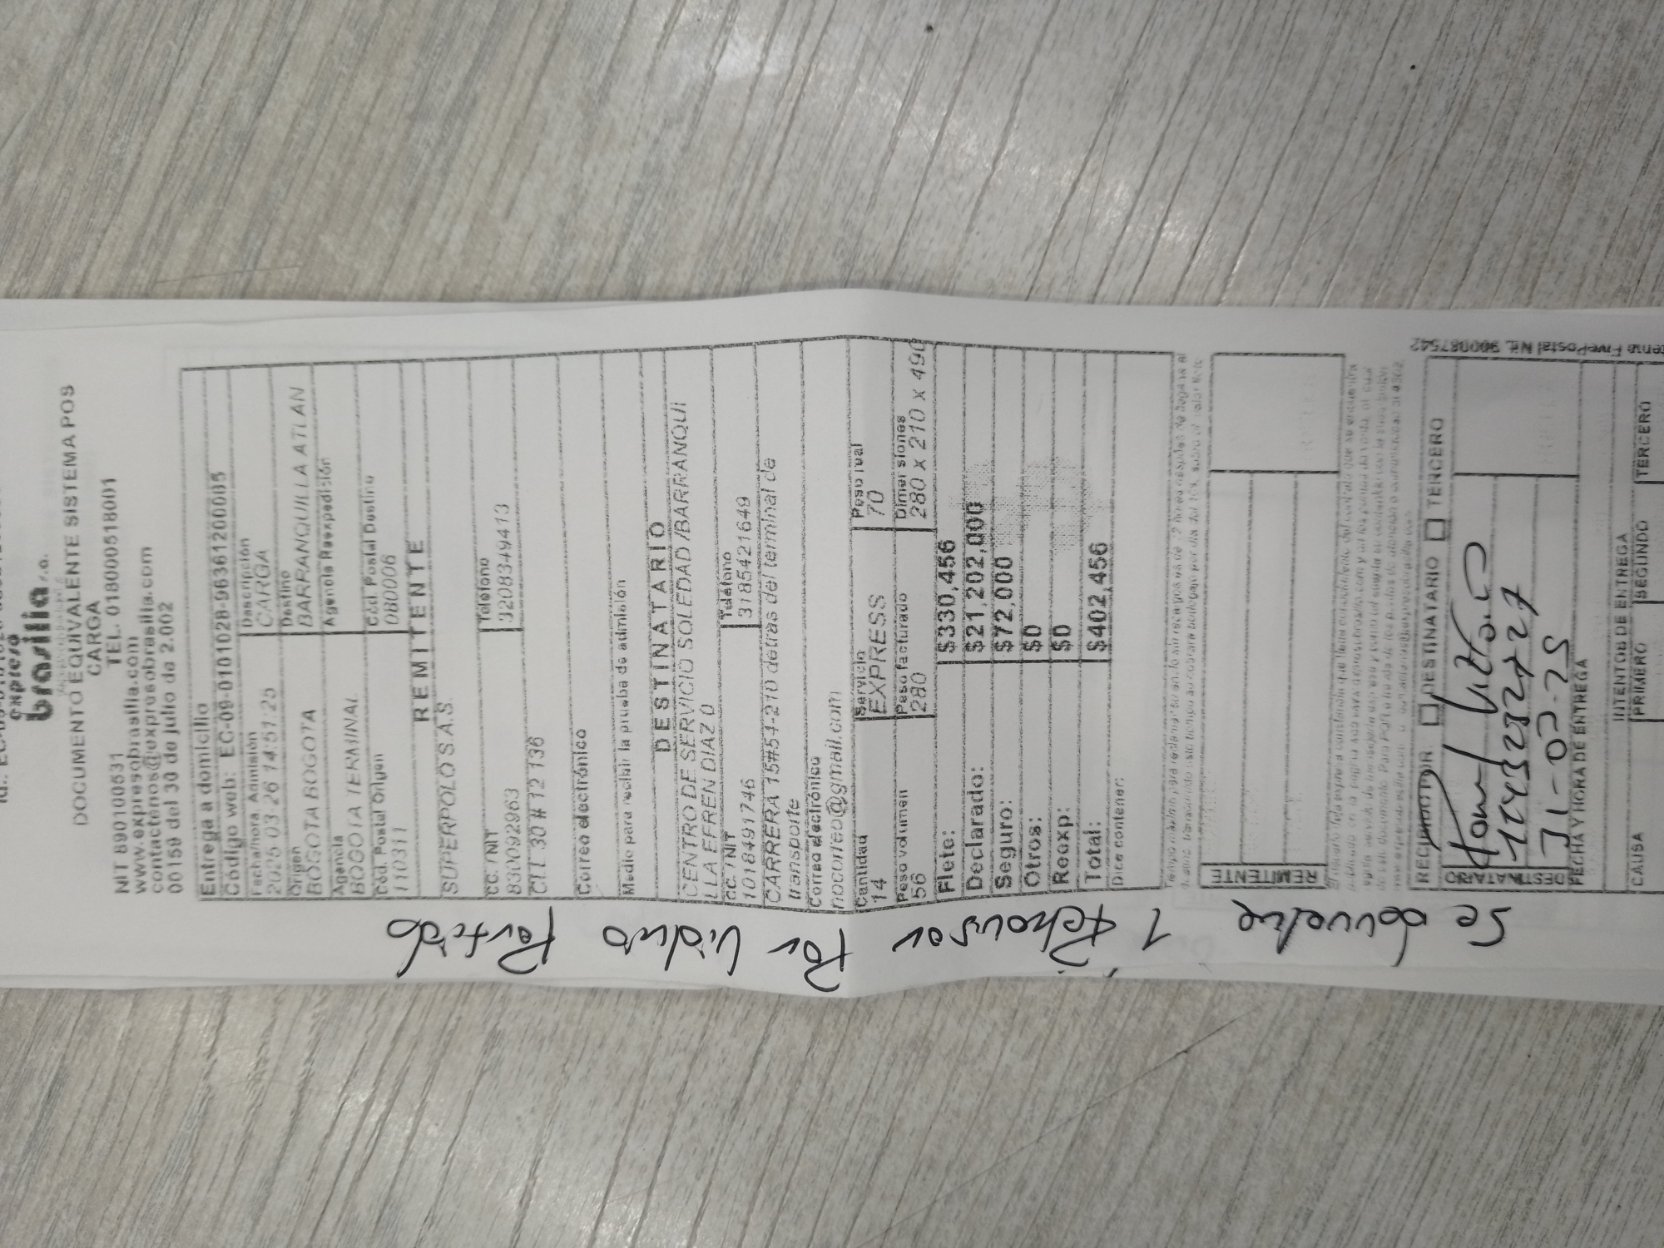 expreso
brasilia s.a.
DOCUMENTO EQUIVALENTE SISTEMA POS
CARGA
NIT 890100531 TEL. 018000518001
www.expresobrasilia.com
contactenos@expresobrasilia.com
00159 del 30 de julio de 2.002
Entrega a domicilio
Código web: EC-09-0101028-9636120005
Fecha/hora Admisión Descripción
2025 03-26 14:51:25 CARGA
Origen Destino
BOGOTA BOGOTA BARRANQUILLA ATLAN
Agencia Agencia Reexpedisión
BOGOTA TERMINAL
Cód. Postal Origen Cód. Postal Destino
110311 080006
REMITENTE
SUPERPOLO S.A.S.
CC. /NIT Teléfono
830092963 3208349413
CLL 30 # 12 136
Correo electrónico
Medio para recibir la prueba de admisión
DESTINATARIO
CENTRO DE SERVICIO SOLEDAD /BARRANQUI
LLA EFREN DIAZ 0
cc. /NIT Teléfono
1018491746 3185421649
CARRERA 15#54-210 detras del terminal de
transporte
Correo electrónico
nocorreo@gmail.com
Cantidad Servicio Peso real
14 EXPRESS 70
Peso volumen Peso facturado Dimensiones
56 280 280 x 210 x 490
Flete: $330,456
Declarado: $21,202,000
Seguro: $72,000
Otros: $0
Reexp: $0
Total: $402,456
Dice contener:
REMITENTE
RECEPTOR DESTINATARIO TERCERO
DESTINATARIO
1043282727
31-03-25
FECHA Y HORA DE ENTREGA
INTENTOS DE ENTREGA
CAUSA PRIMERO SEGUNDO TERCERO
FivePostal Nit. 900087542
Se devuelve 1 Retrovisor Por Vidrio Partido